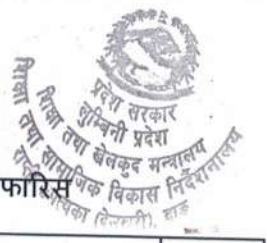 प्रदेश सरकार
लुम्बिनी प्रदेश
शिक्षा तथा खेलकुद मन्त्रालय
शिक्षा तथा सामाजिक विकास निर्देशनालय
(देउखुरी), दाङ
फारिस